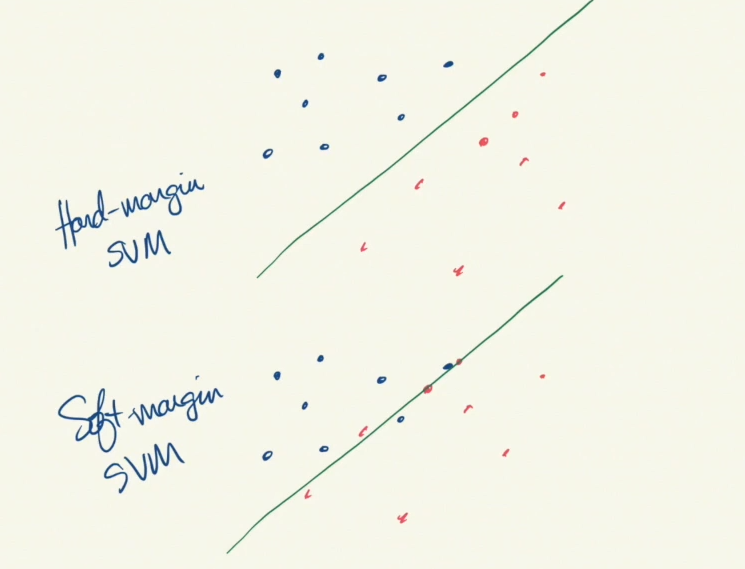 Hard-margin
SVM
Soft-margin
SVM